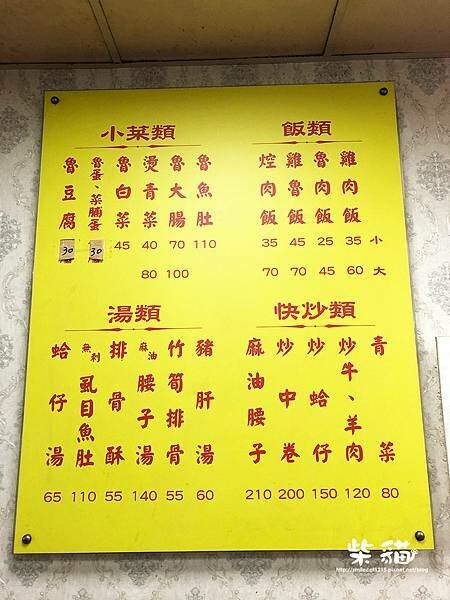 小菜類
魯豆腐 30
魯蛋、菜脯蛋 30
魯白菜 45
燙青菜 40 80
魯大腸 70 100
魯魚肚 110
飯類
焢肉飯 35 70
雞魯飯 45 70
魯肉飯 25 45
雞肉飯 35 60
小
大
湯類
蛤仔湯 65
無刺虱目魚肚 110
排骨酥 55
麻油腰子湯 140
竹筍排骨 55
豬肝湯 60
快炒類
麻油腰子 210
炒中卷 200
炒蛤仔 150
炒牛、羊肉 120
青菜 80
柴貓
http://smiledof1215.pixnet.net/blog